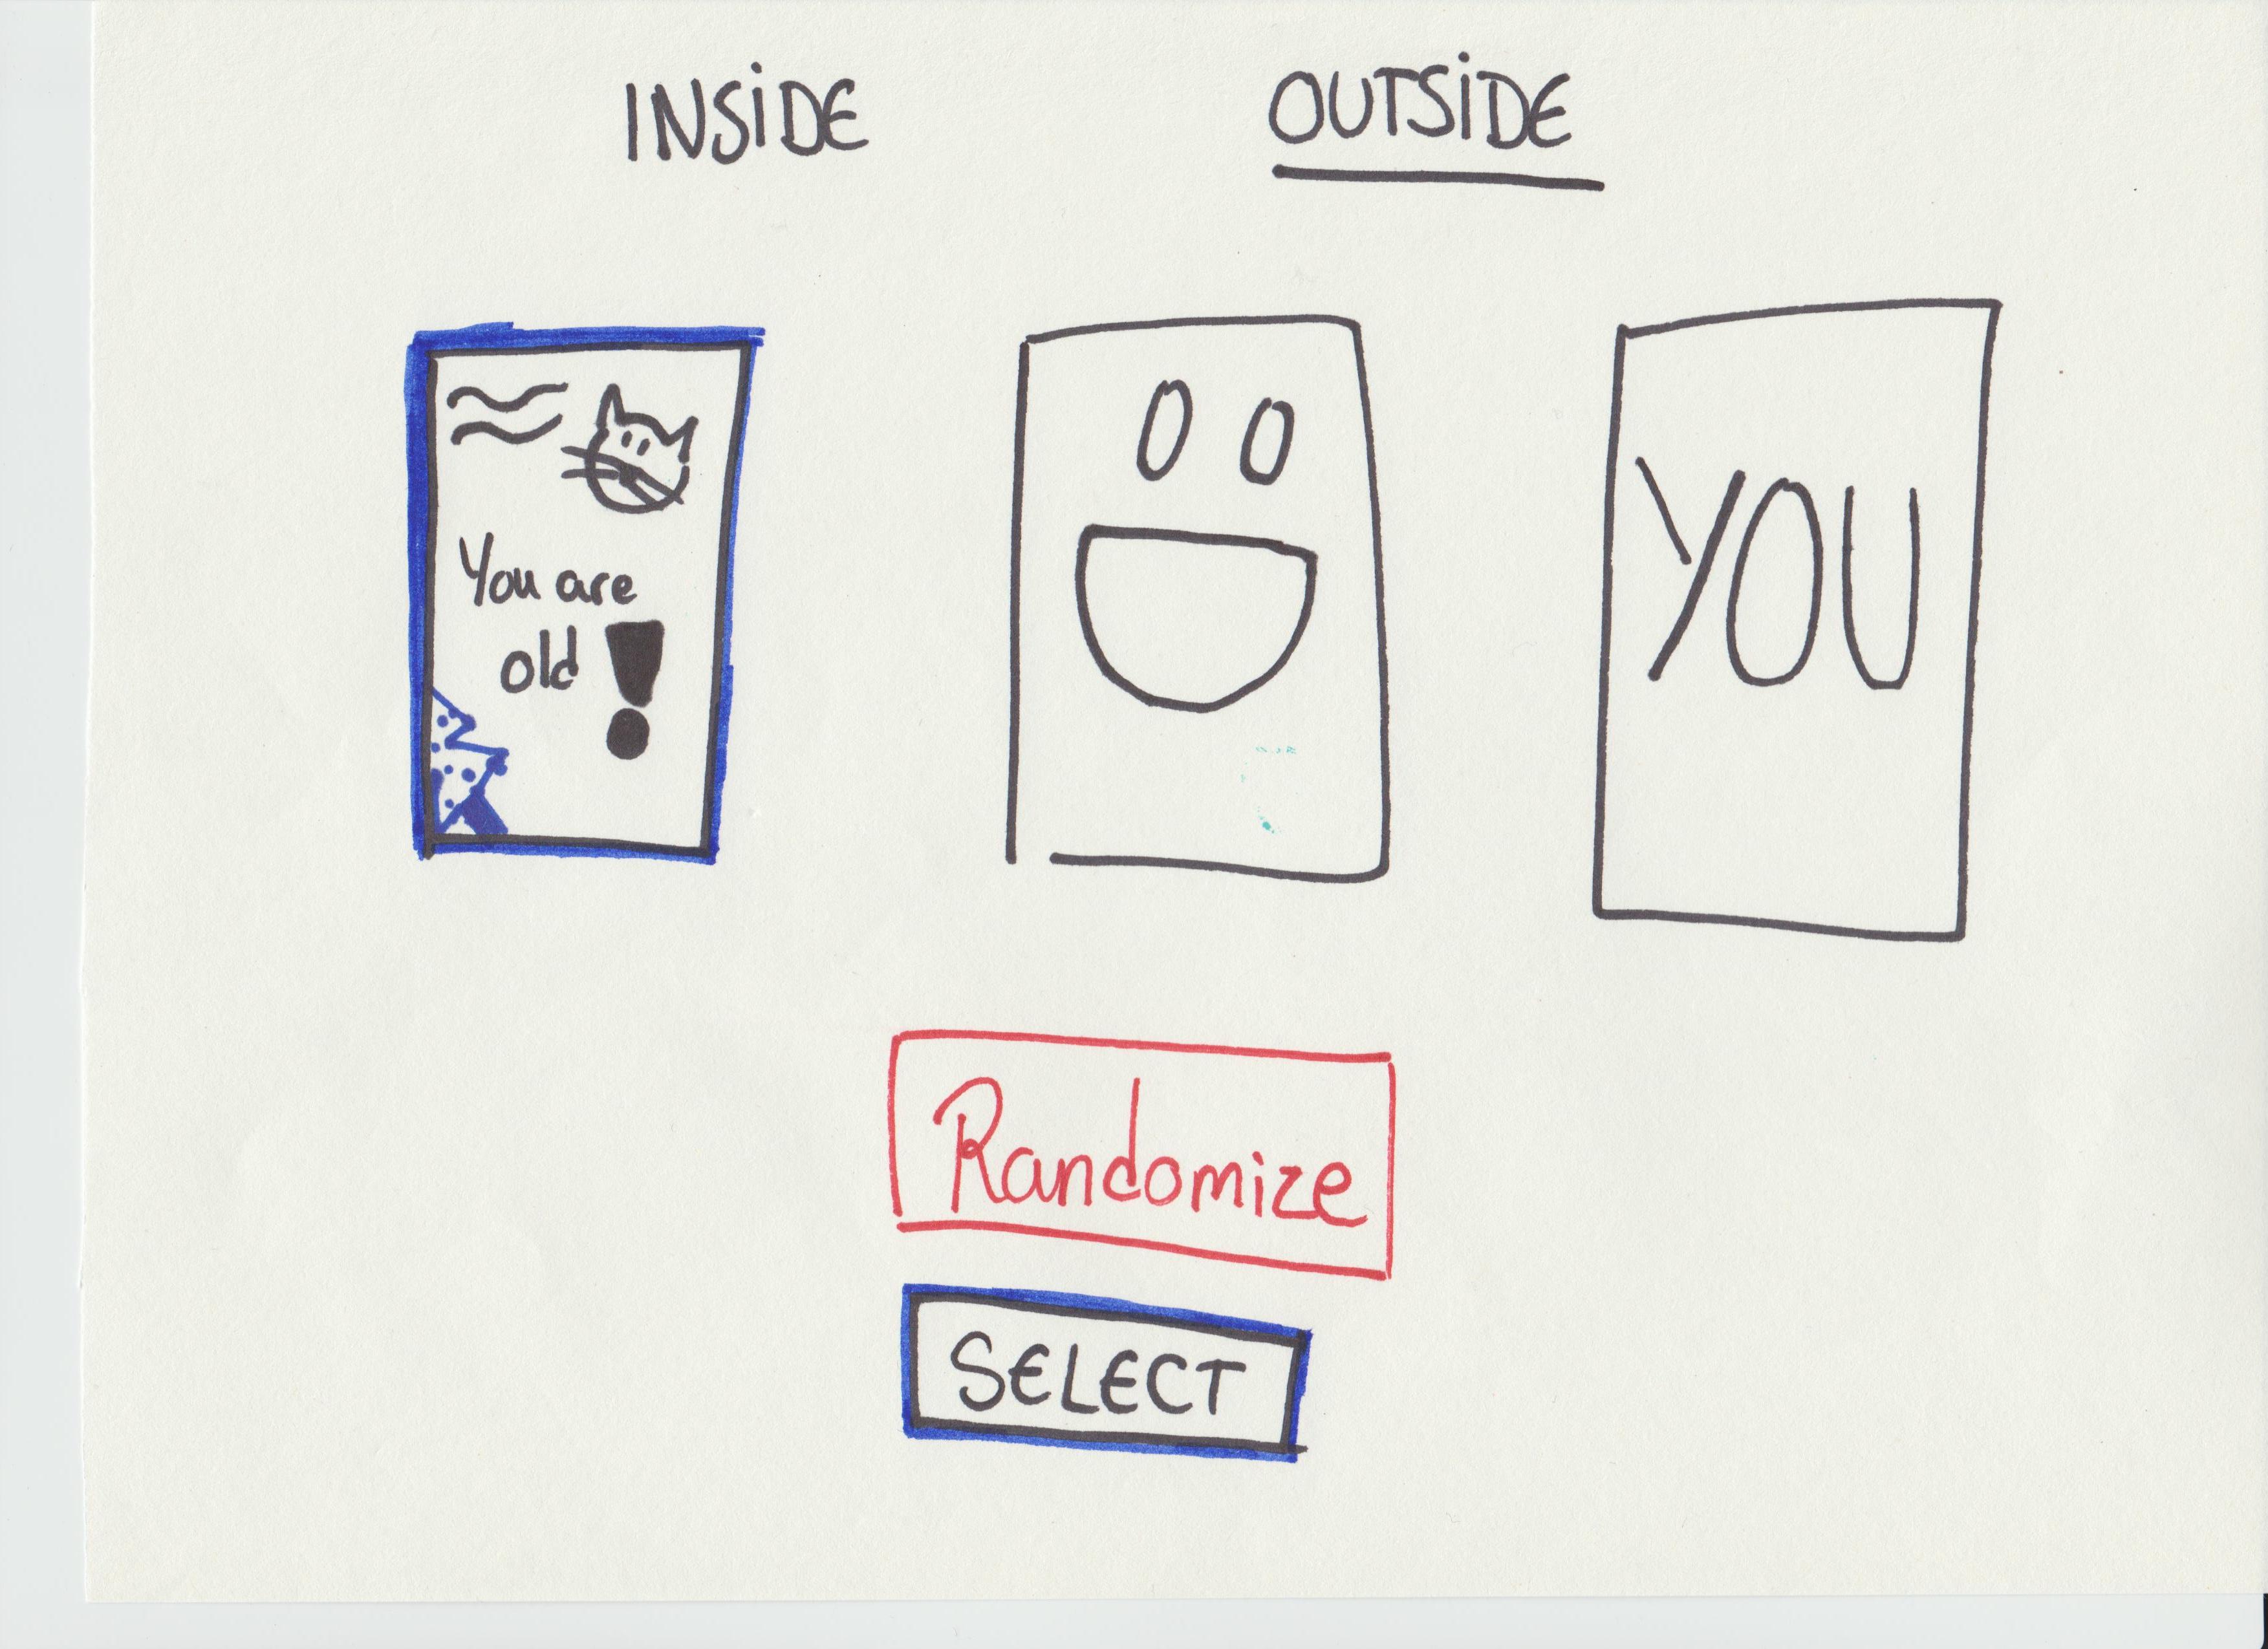 INSIDE OUTSIDE
You are
old !
YOU
Randomize
SELECT